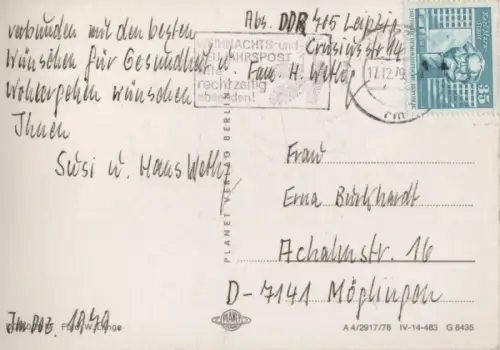 verbunden mit den besten
Wünschen für Gesundheit u.
Wohlergehen wünschen
Ihnen
Susi u. Hans Weth
Im Dez. 1979
Abs. DDR 705 Leipzig
Crusiusstr. 14
Fam. H. Weth
WEIHNACHTS- und
rechtzeitig
absenden!
17.12.79
35
PLANET VERLAG BERLIN
Frau
Erna Burkhardt
Achalmstr. 16
D-7141 Möglingen
PLANET
A 4/2917/78 IV-14-483 G 8435